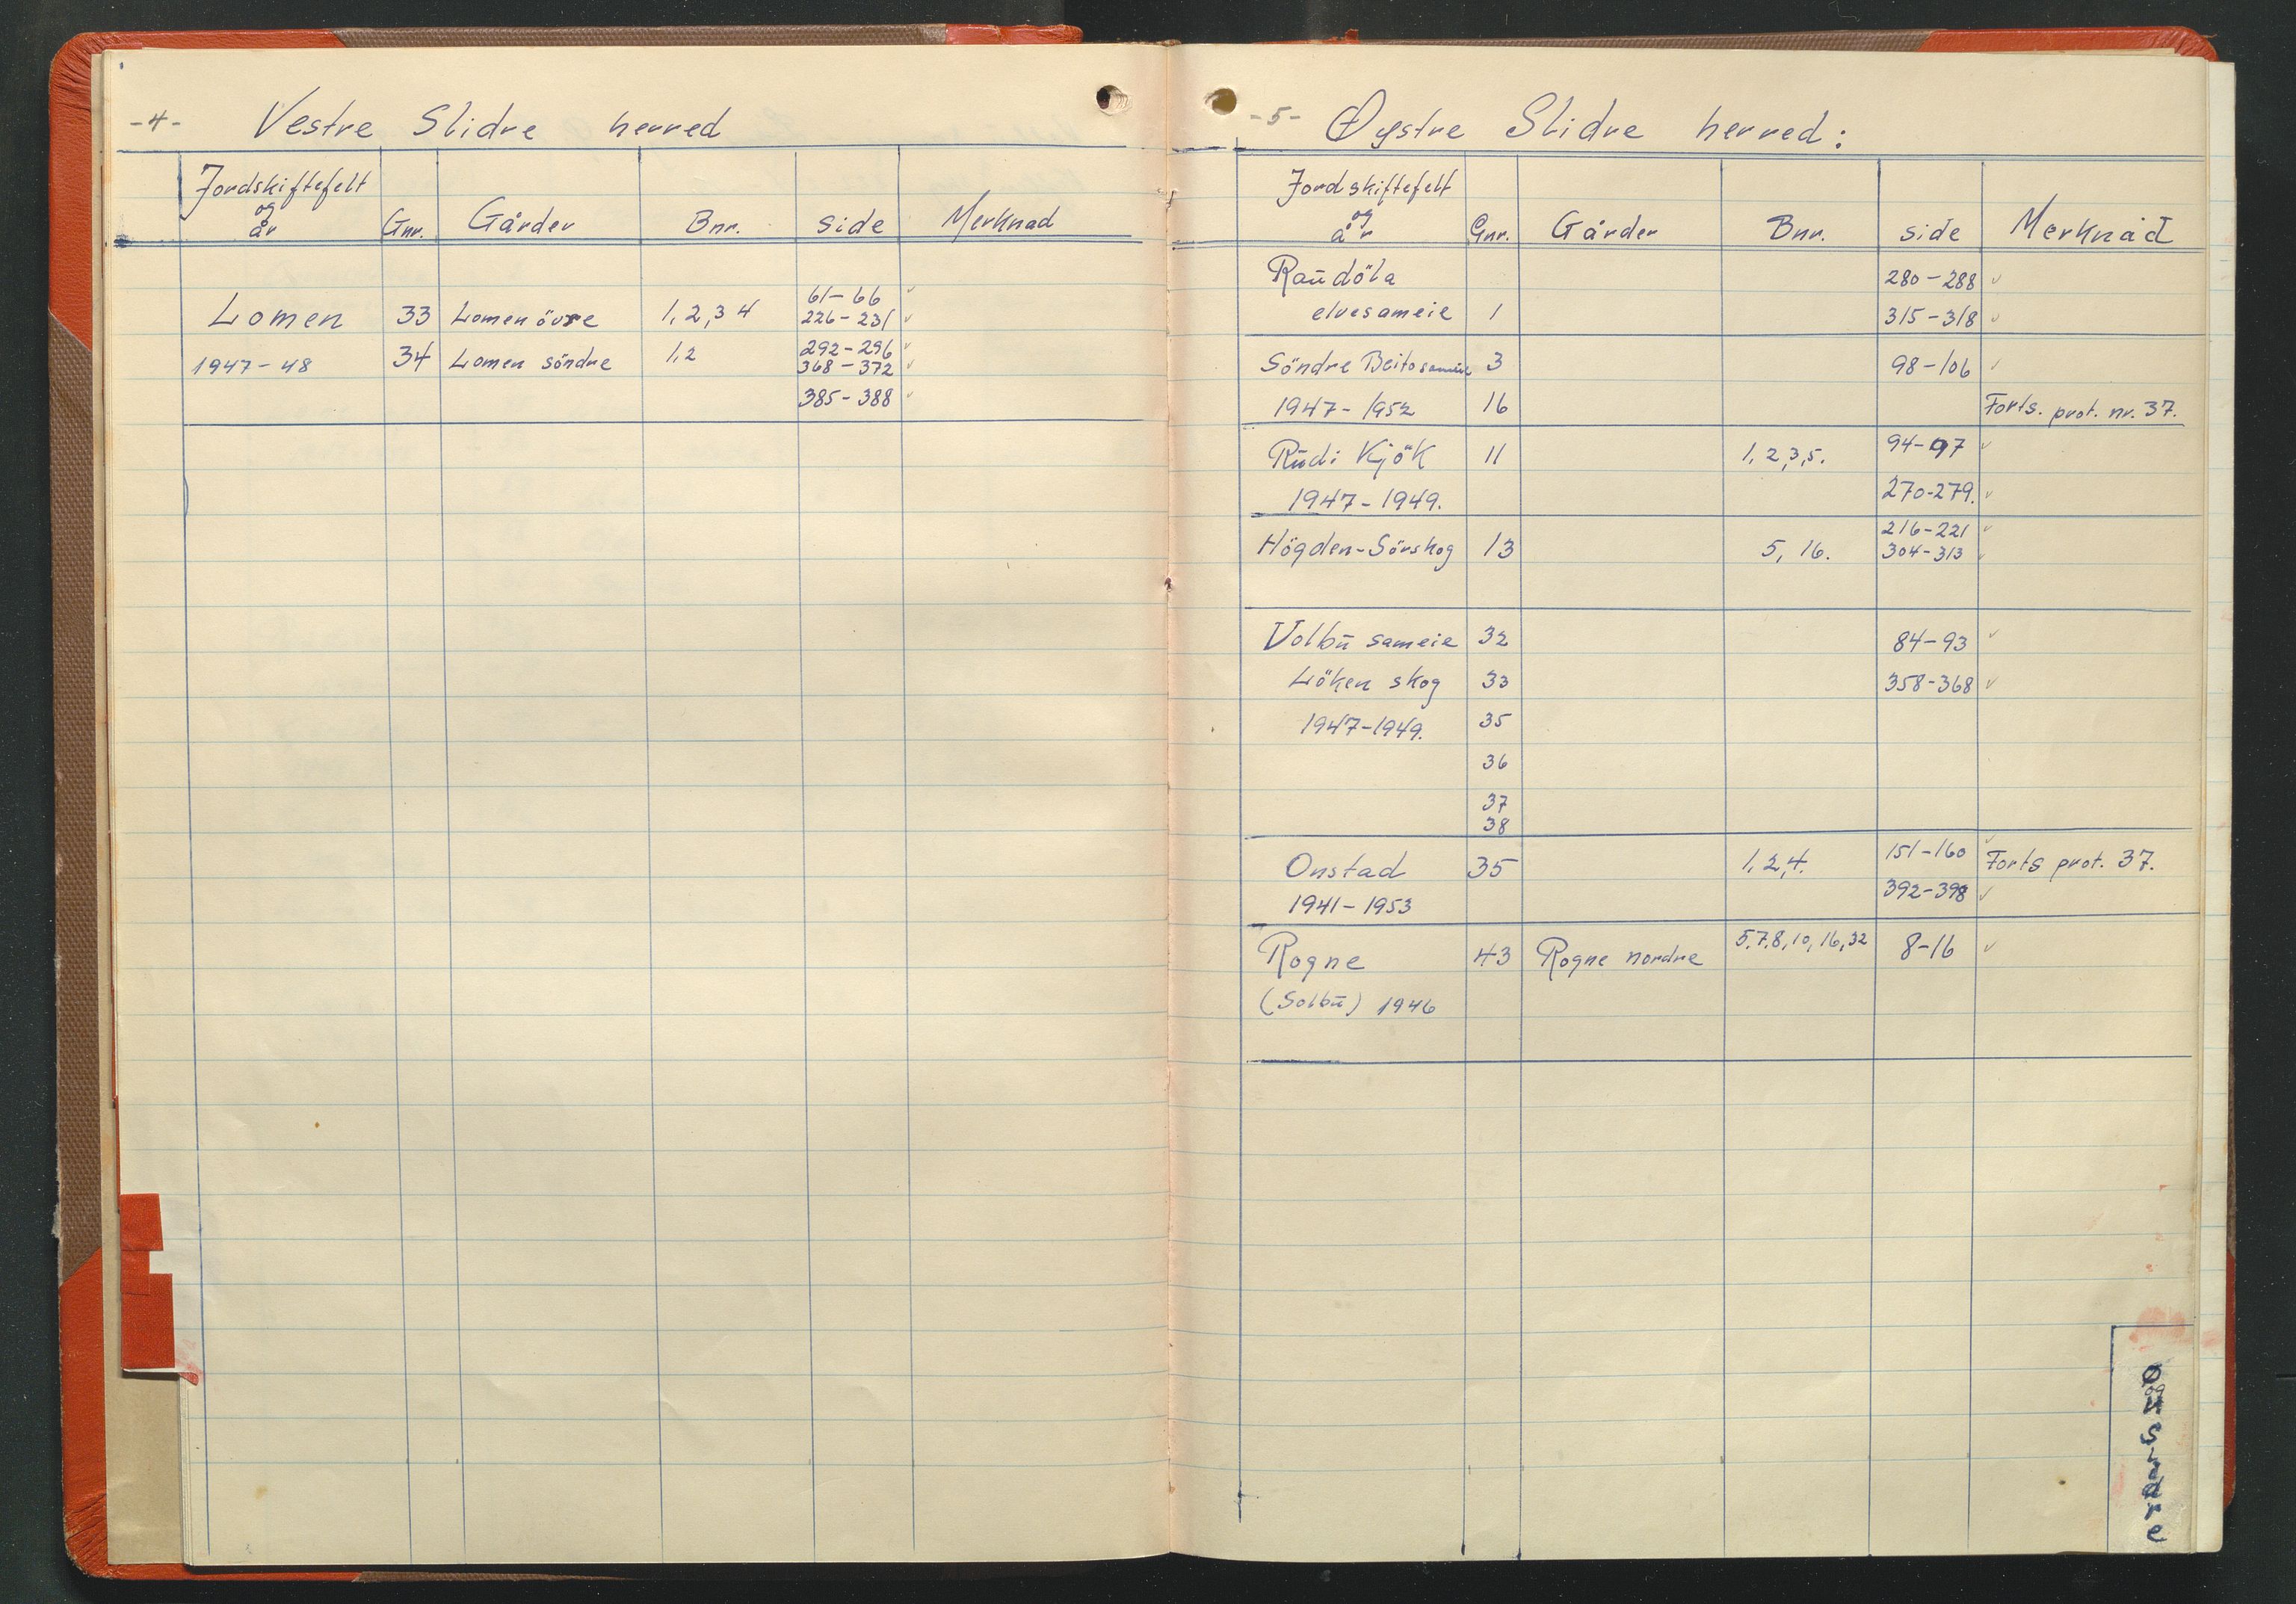 -4- Vestre Slidre herred
Jordskiftefelt
og
år Gnr. Gårder Bnr. Side Merknad
61-66 ✓
Lomen 33 Lomen övre 1, 2, 3 4 226-231 ✓
292-296 ✓
1947-48 34 Lomen söndre 1,2 368-372 ✓
385-388 ✓
-5- Øystre Slidre herred:
Jordskiftefelt
og
år Gnr. Gårder Bnr. side Merknad
Raŭdöla 280-288 ✓
elvesameie 1 315-318 ✓
Söndre Beito sameie 3 98-106 ✓
1947-1952 16 Forts. prot. nr. 37.
Rŭdi Kjök 11 1, 2, 3, 5. 94-97 ✓
1947-1949. 270-279. ✓
216-221 ✓
Högden-Sörskog 13 5, 16. 304-313 ✓
Volbŭ sameie 32 84-93 ✓
Löken skog 33 358-368 ✓
1947-1949. 35
36
37
38
Onstad 35 1, 2, 4. 151-160 ✓ Forts prot. 37.
1941-1953 392-398 ✓
Rogne 43 Rogne nordre 5, 7, 8, 10, 16, 32 8-16 ✓
(Solbŭ) 1946